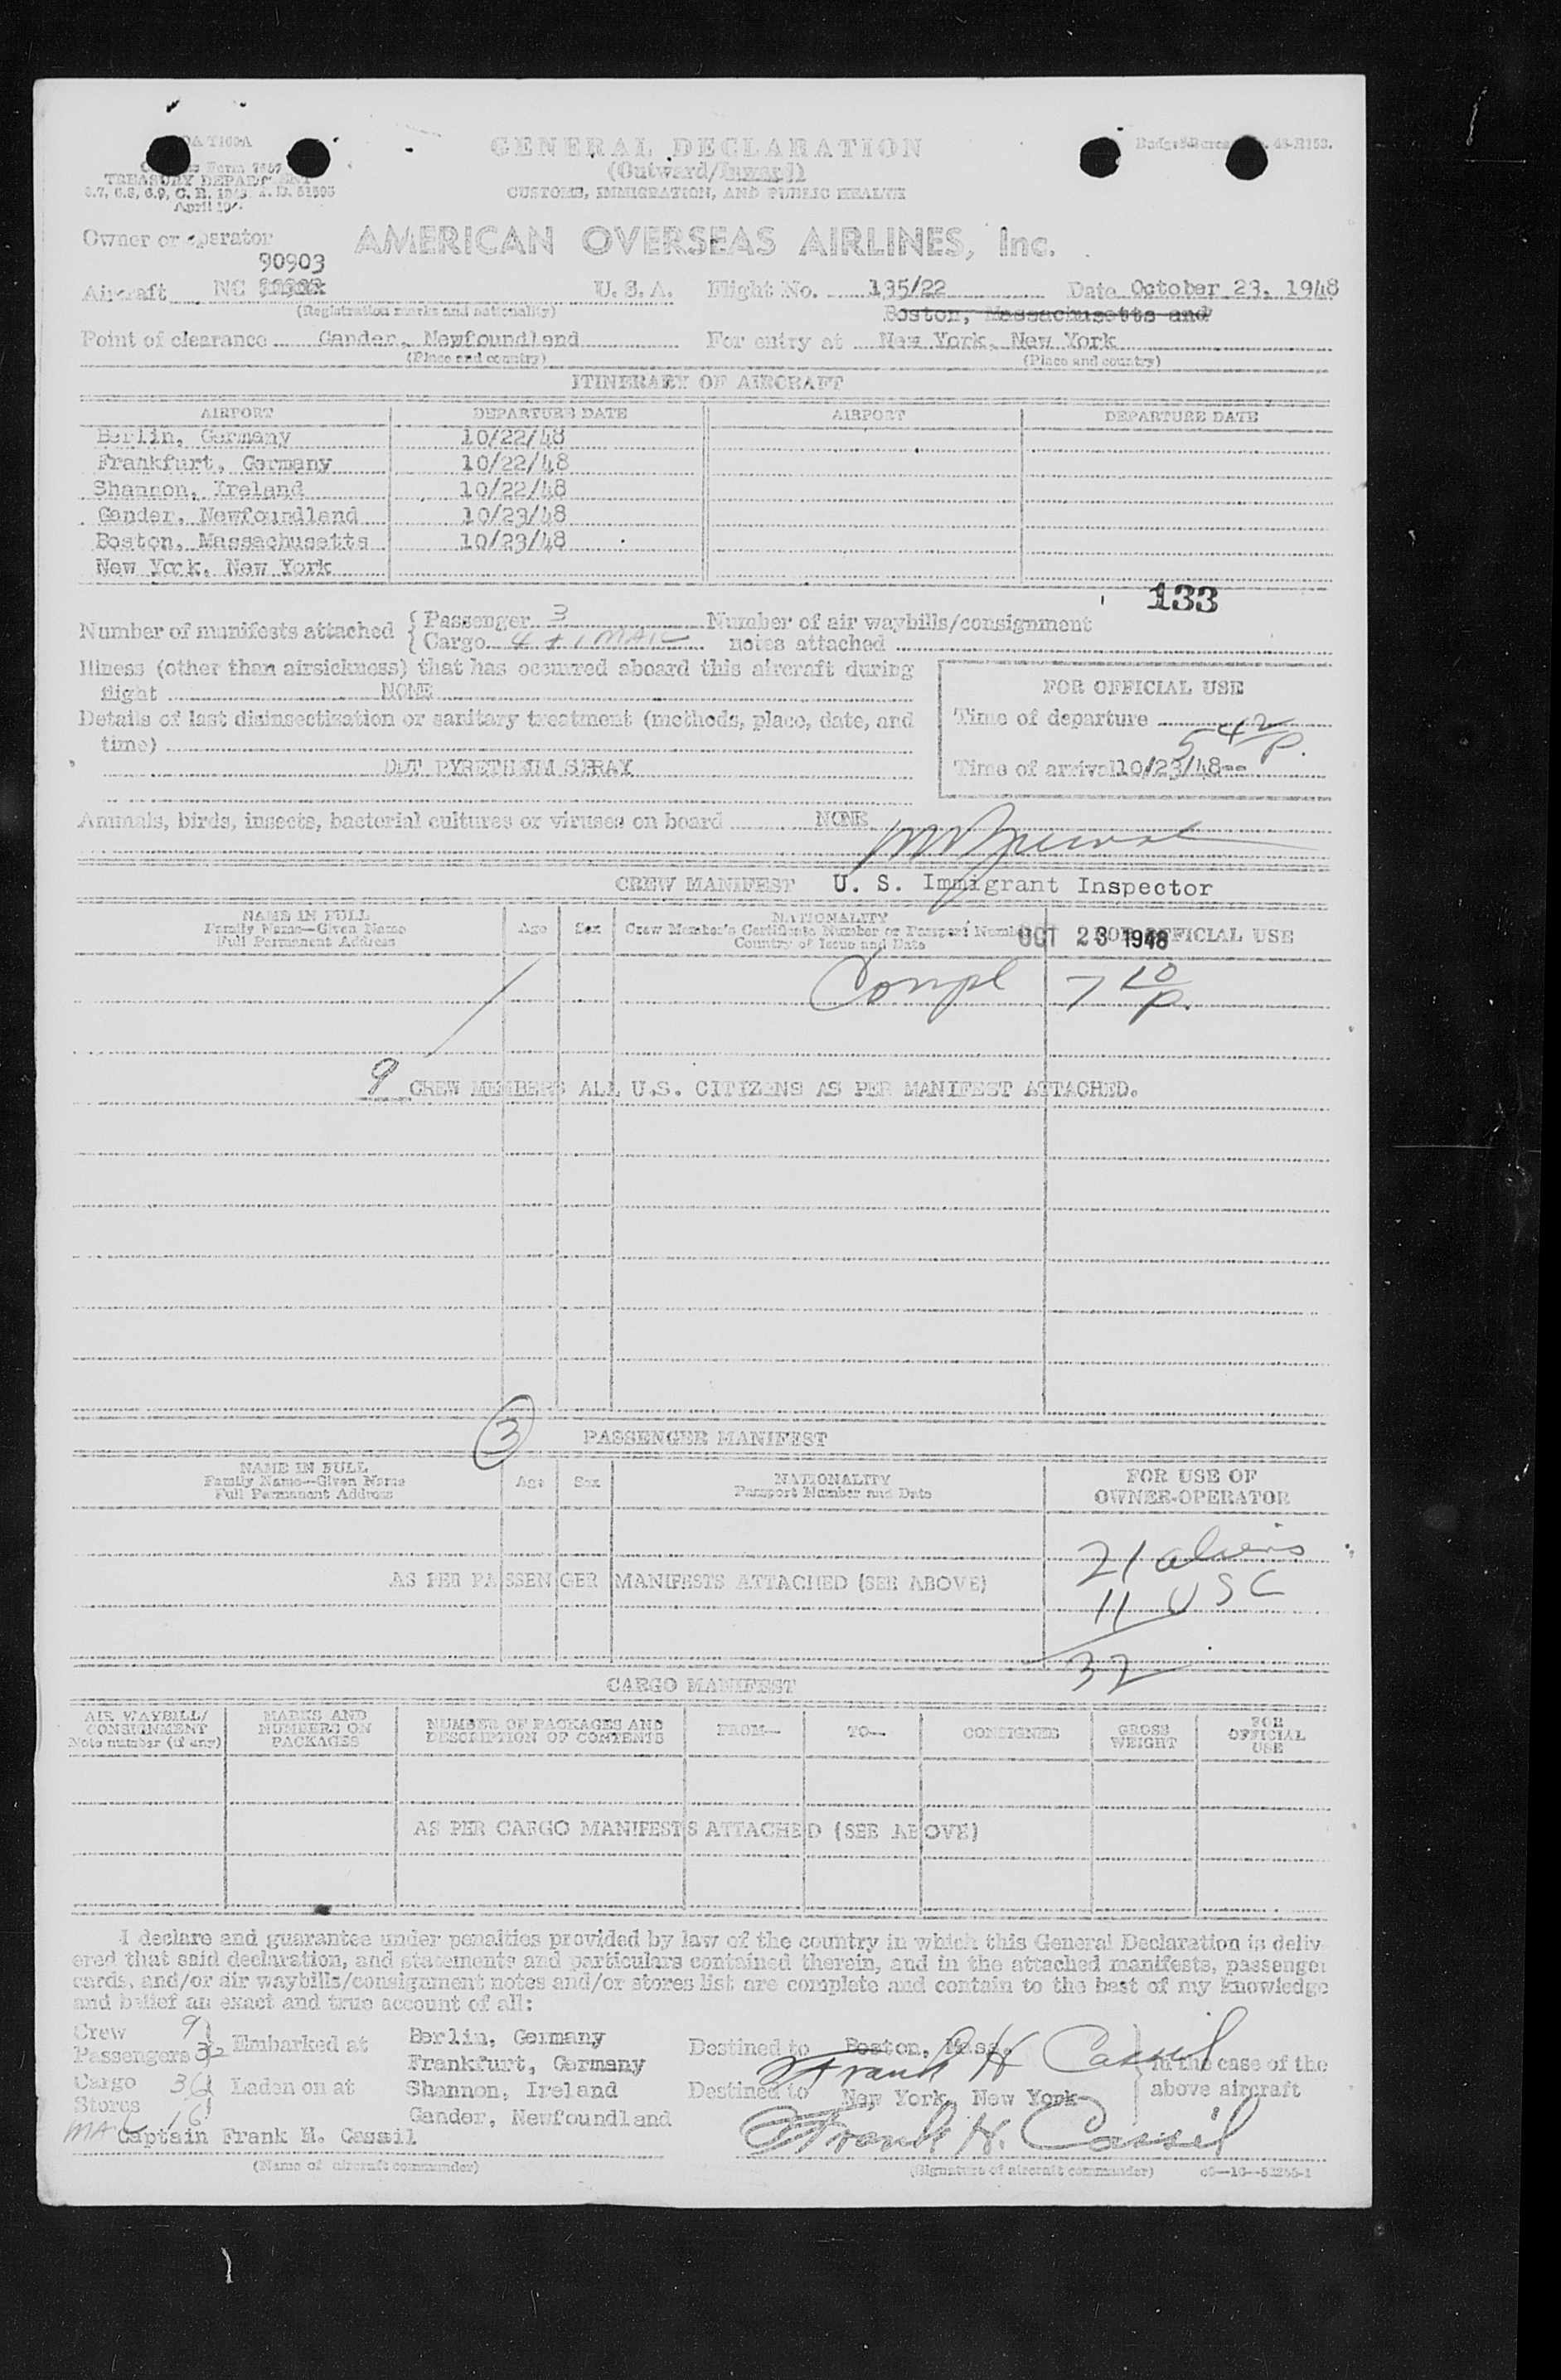 GENERAL DECLARATION
(Outward/Inward)
CUSTOMS, IMMIGRATION, AND PUBLIC HEALTH
TREASURY DEPARTMENT
April 194
Owner or operator AMERICAN OVERSEAS AIRLINES, Inc.
90903
Aircraft NC U. S. A. Flight No. 135/22 Date October 23, 1948
(Registration marks and nationality)
Boston, Massachusetts and
Point of clearance Gander, Newfoundland For entry at New York, New York
(Place and country) (Place and country)
ITINERARY OF AIRCRAFT
AIRPORT DEPARTURE DATE AIRPORT DEPARTURE DATE
Berlin, Germany 10/22/48
Frankfurt, Germany 10/22/48
Shannon, Ireland 10/22/48
Gander, Newfoundland 10/23/48
Boston, Massachusetts 10/23/48
New York, New York
133
Number of manifests attached { Passenger 3 Number of air waybills/consignment
Cargo 4 + 1 MAIL notes attached
Illness (other than airsickness) that has occurred aboard this aircraft during
flight NONE
FOR OFFICIAL USE
Details of last disinsectization or sanitary treatment (methods, place, date, and
time)
Time of departure
5 42 P.
DDT PYRETHEUM SPRAY
Time of arrival 10/23/48--
Animals, birds, insects, bacterial cultures or viruses on board NONE
CREW MANIFEST U. S. Immigrant Inspector
NAME IN FULL
Family Name—Given Name
Full Permanent Address
Age Sex
NATIONALITY
Crew Member's Certificate Number or Passport Number
Country of Issue and Date
FOR OFFICIAL USE
OCT 23 1948
Compl 7 10 P.
9 CREW MEMBERS ALL U.S. CITIZENS AS PER MANIFEST ATTACHED.
3
PASSENGER MANIFEST
NAME IN FULL
Family Name—Given Name
Full Permanent Address
Age Sex
NATIONALITY
Passport Number and Date
FOR USE OF
OWNER-OPERATOR
21 aliens
AS PER PASSENGER MANIFESTS ATTACHED (SEE ABOVE)
11 USC
32
CARGO MANIFEST
AIR WAYBILL/
CONSIGNMENT
Note number (if any)
MARKS AND
NUMBERS ON
PACKAGES
NUMBER OF PACKAGES AND
DESCRIPTION OF CONTENTS
FROM—
TO—
CONSIGNEE
GROSS
WEIGHT
FOR
OFFICIAL
USE
AS PER CARGO MANIFESTS ATTACHED (SEE ABOVE)
I declare and guarantee under penalties provided by law of the country in which this General Declaration is deliv
ered that said declaration, and statements and particulars contained therein, and in the attached manifests, passenger
cards, and/or air waybills/consignment notes and/or stores list are complete and contain to the best of my knowledge
and belief an exact and true account of all:
Crew 9
Passengers 32 Embarked at
Cargo Laden on at
Stores
Berlin, Germany
Frankfurt, Germany
Shannon, Ireland
Gander, Newfoundland
Destined to Boston, Mass.
Frank H Cassil
Destined to New York, New York
in the case of the
above aircraft
Captain Frank H. Cassil
Frank H. Cassil
(Name of aircraft commander) (Signature of aircraft commander)